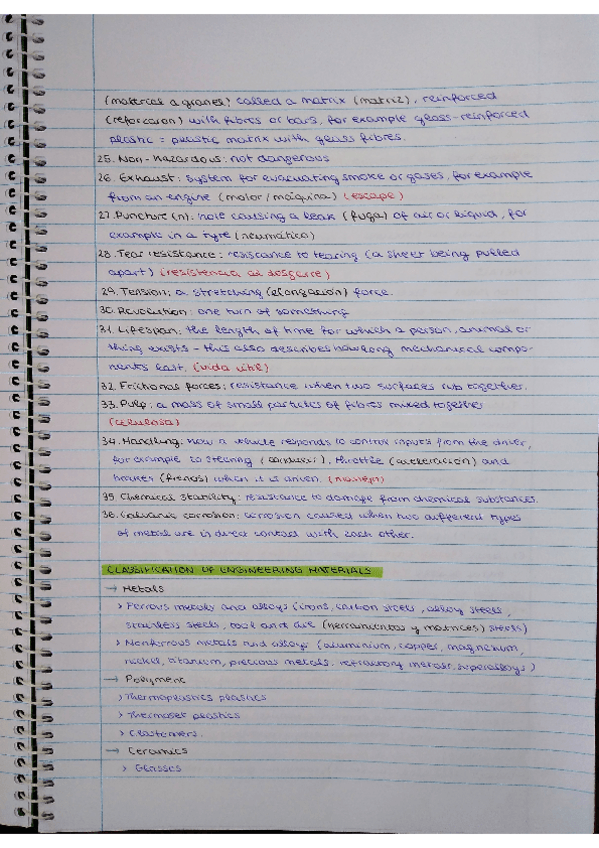 (material a granel) called a matrix (matriz), reinforced
(reforzason) with fibres or bars, for example glass-reinforced
plastic = plastic matrix with glass fibres.
25. Non-hazardous: not dangerous
26. Exhaust: system for evacuating smoke or gases, for example
from an engine (motor/máquina) (escape)
27. Puncture (n): hole causing a leak (fuga) of air or liquid, for
example in a tyre (neumático)
28. Tear resistance: resistance to tearing (a sheet being pulled
apart) (resistencia al desgarre)
29. Tension: a stretching (elongación) force.
30. Revolution: one turn of something
31. Lifespan: the length of time for which a person, animal or
thing exists - this also describes how long mechanical compo-
nents last. (vida útil)
32. Frictional forces: resistance when two surfaces rub together.
33. Pulp: a mass of small particles of fibres mixed together
(celulosa)
34. Handling: how a vehicle responds to control inputs from the driver,
for example to steering, throttle (aceleración) and
brakes (frenos) when it is driven. (manejo)
35. Chemical stability: resistance to damage from chemical substances.
36. Galvanic corrosion: corrosion caused when two different types
of metal are in direct contact with each other.
CLASSIFICATION OF ENGINEERING MATERIALS
→ Metals
> Ferrous metals and alloys (irons, carbon steels, alloy steels,
stainless steels, tool and die (herramientas y matrices) steels)
> Nonferrous metals and alloys (aluminium, copper, magnesium,
nickel, titanium, precious metals, refractory metals, superalloys)
→ Polymeric
> Thermoplastics plastics
> Thermoset plastics
> Elastomers
→ Ceramics
> Glasses